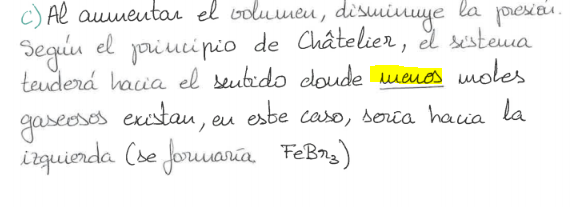 c) Al aumentar el volumen, disminuye la presión.
Según el principio de Châtelier, el sistema
tenderá hacia el sentido donde menos moles
gaseosos existan, en este caso, sería hacia la
izquierda (se formaría FeBr₃)